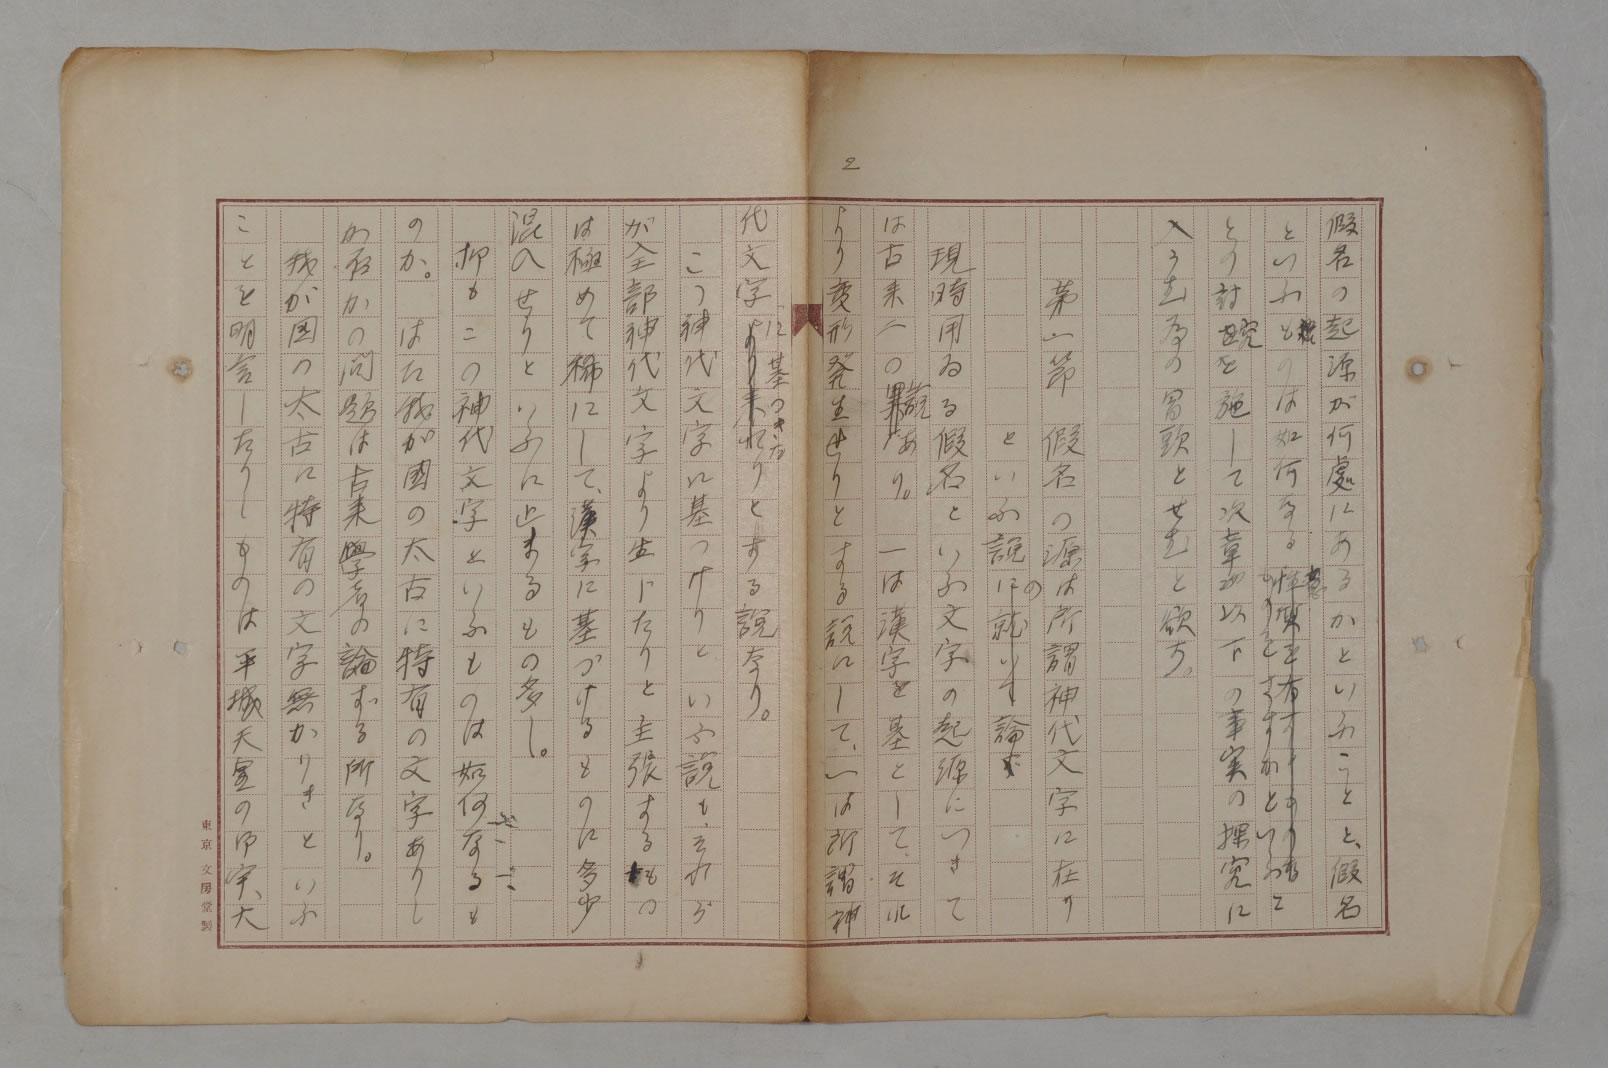 2
假名の起源が何處にあるかといふことと、假名
といふものは如何なる
との討究を施して次章以下の事実の探究に
入らむ為の冒頭とせむと欲す。
第一節　假名の源は所謂神代文字に在り
といふ説に就いての論
現時用ゐる假名といふ文字の起源につきて
は古来二の説あり。一は漢字を基として、それ
より変形発生せりとする説にして、一は所謂神
代文字に基づきたりとする説なり。
この神代文字に基つけりといふ説も、それが
が全部神代文字より生じたりと主張するもの
は極めて稀にして、漢字に基づけるものに多少
混入せりといふに止まるもの多し。
抑もこの神代文字といふものは如何なるも
のか。はた我が國の太古に特有の文字ありし
か否かの問題は古来學者の論ずる所なり。
我が国の太古に特有の文字無かりきといふ
ことを明言したりしものは平城天皇の御宇、大
東京 文房堂製